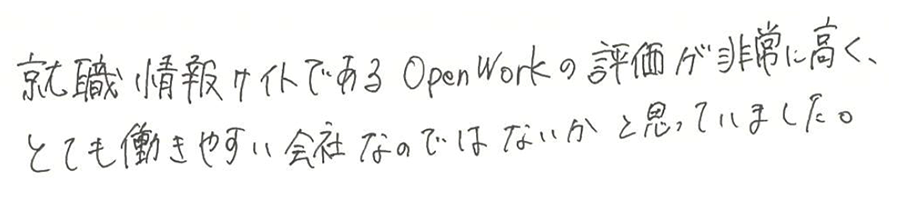 就職情報サイトであるOpenWorkの評価が非常に高く、
とても働きやすい会社なのではないかと思っていました。